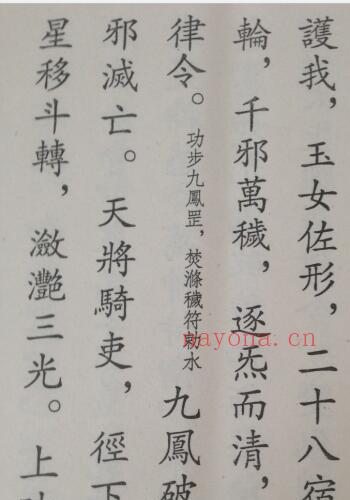 護我，玉女佐形，二十八宿
輪，千邪萬穢，逐炁而清，
律令。功步九鳳罡，焚滌穢符勅水 九鳳破
邪滅亡。天將騎吏，徑下
星移斗轉，瀲灩三光。上
nayona.cn